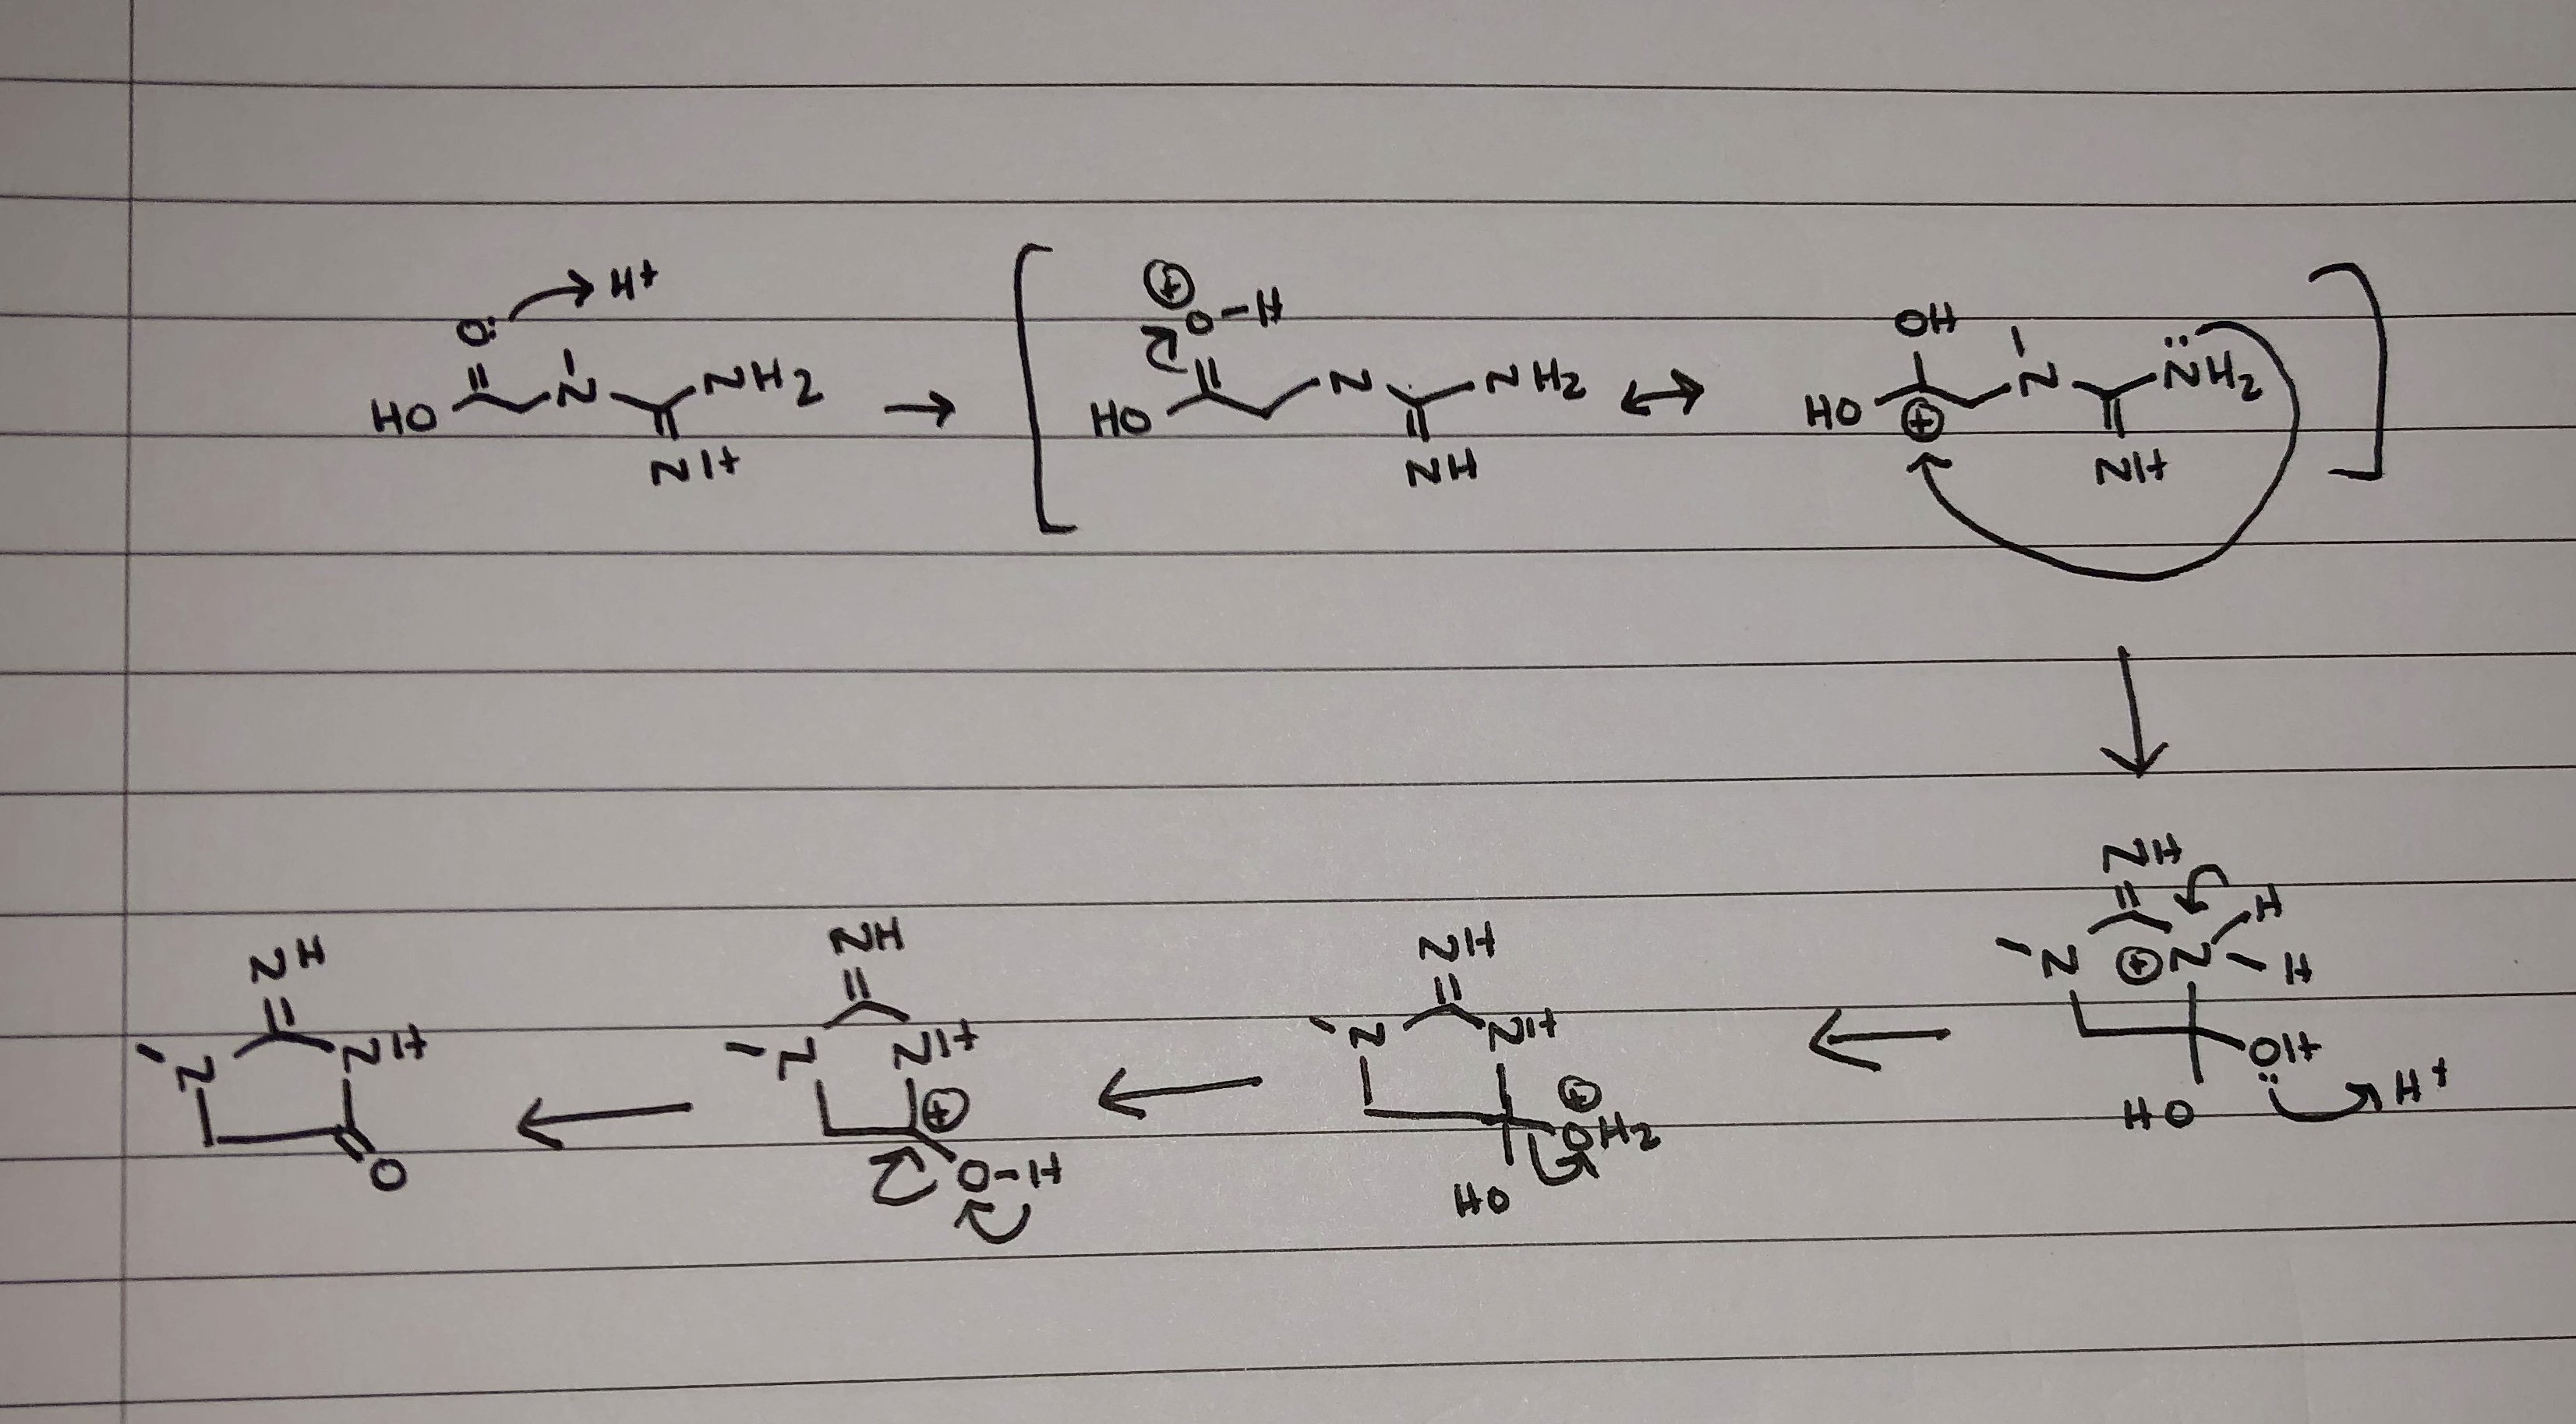 H+
O:
N
NH2
HO
NH
⊕
O-H
N
NH2
HO
NH
OH
N
N̈H2
HO
⊕
NH
NH
H
N
⊕
N
H
OH
HO
H+
NH
N
NH
⊕
OH2
HO
NH
N
NH
⊕
O-H
NH
N
NH
O